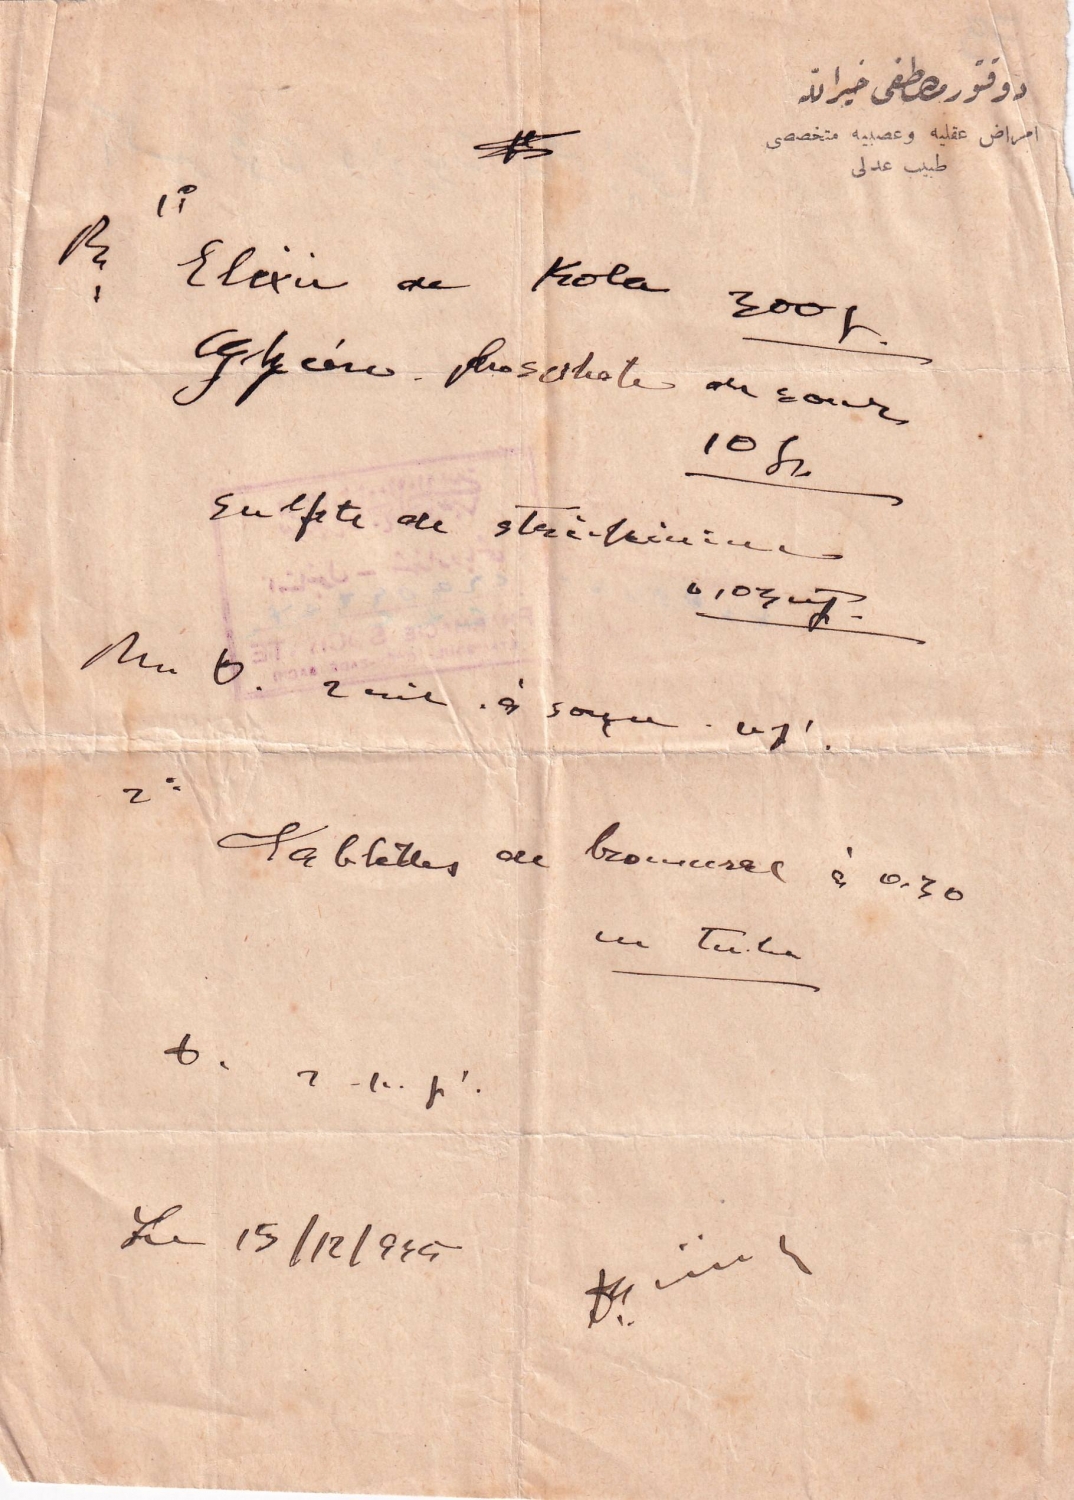 دوقتور مصطفى خيرالله
امراض عقليه وعصبيه متخصصى
طبيب عدلى
1º
Elixir de Kola 300 gr.
Glycéro-phosphate de soude
10 gr
Sulfate de strichinine
0,03
2 à soupe
2º
Tablettes de bromural à 0.30
un tube
2
Le 15/12/935